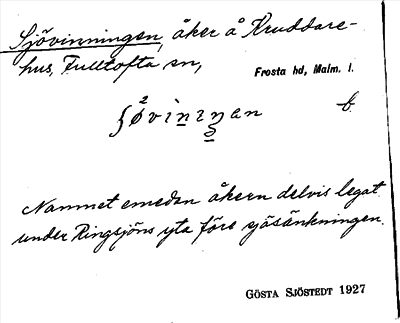 Sjövinningen, åker å Kruddare-
hus, Fulltofta sn,
Frosta hd, Malm. l.
Namnet emedan åkern delvis legat
under Ringsjöns yta före sjösänkningen.
GÖSTA SJÖSTEDT 1927